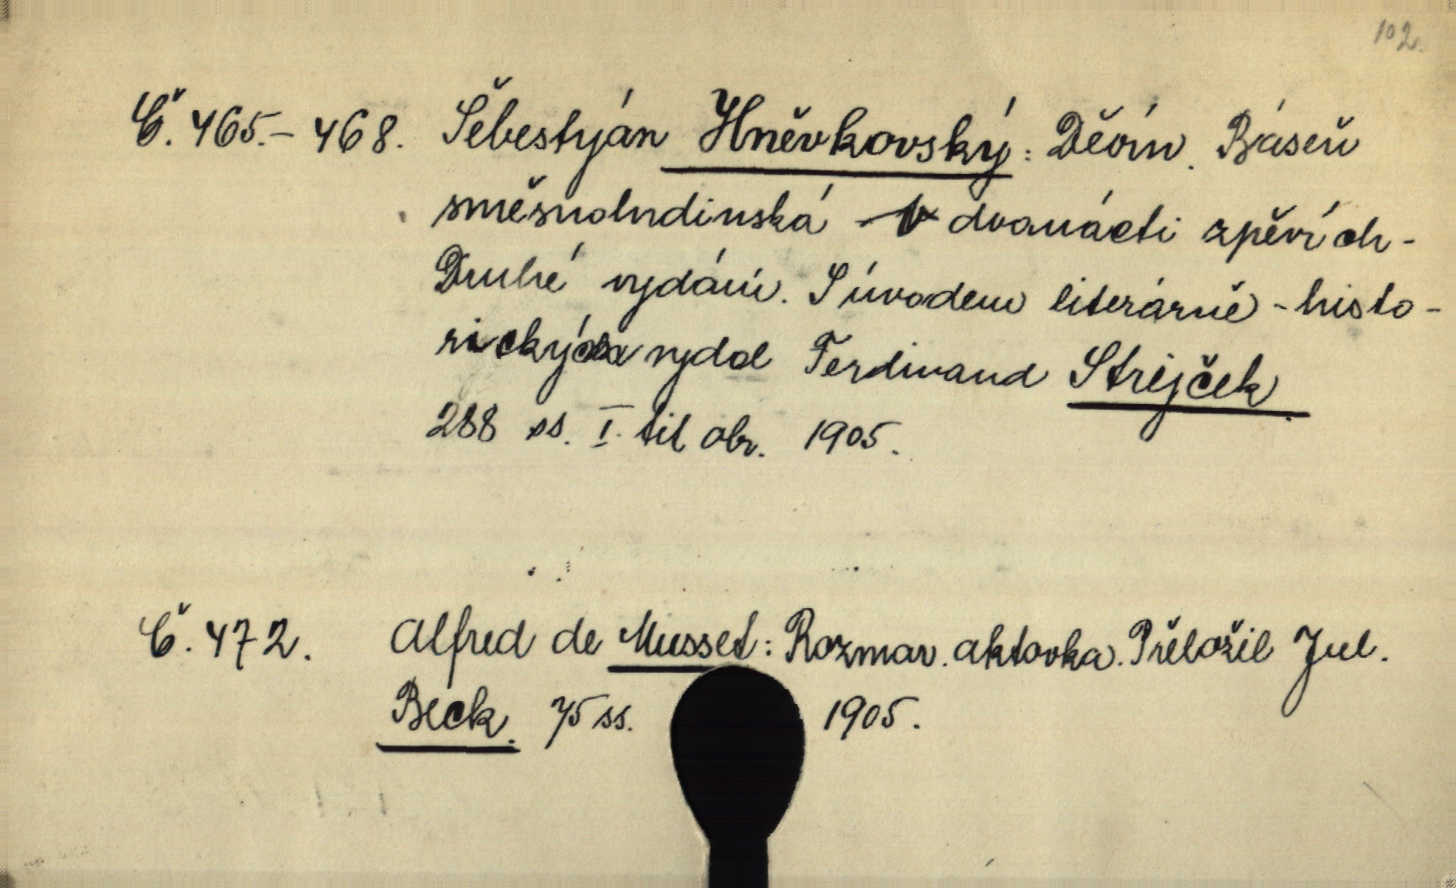 102.
Č. 465.–468. Šebestyán Hněvkovský: Děvín. Báseň
směšnohrdinská v dvanácti zpěvích.
Druhé vydání. S úvodem literárně-histo-
rickým vydal Ferdinand Strejček.
288 ss. I. tit obr. 1905.
Č. 472. Alfred de Musset: Rozmar. Aktovka. Přeložil Jul.
Beck. 75 ss. 1905.